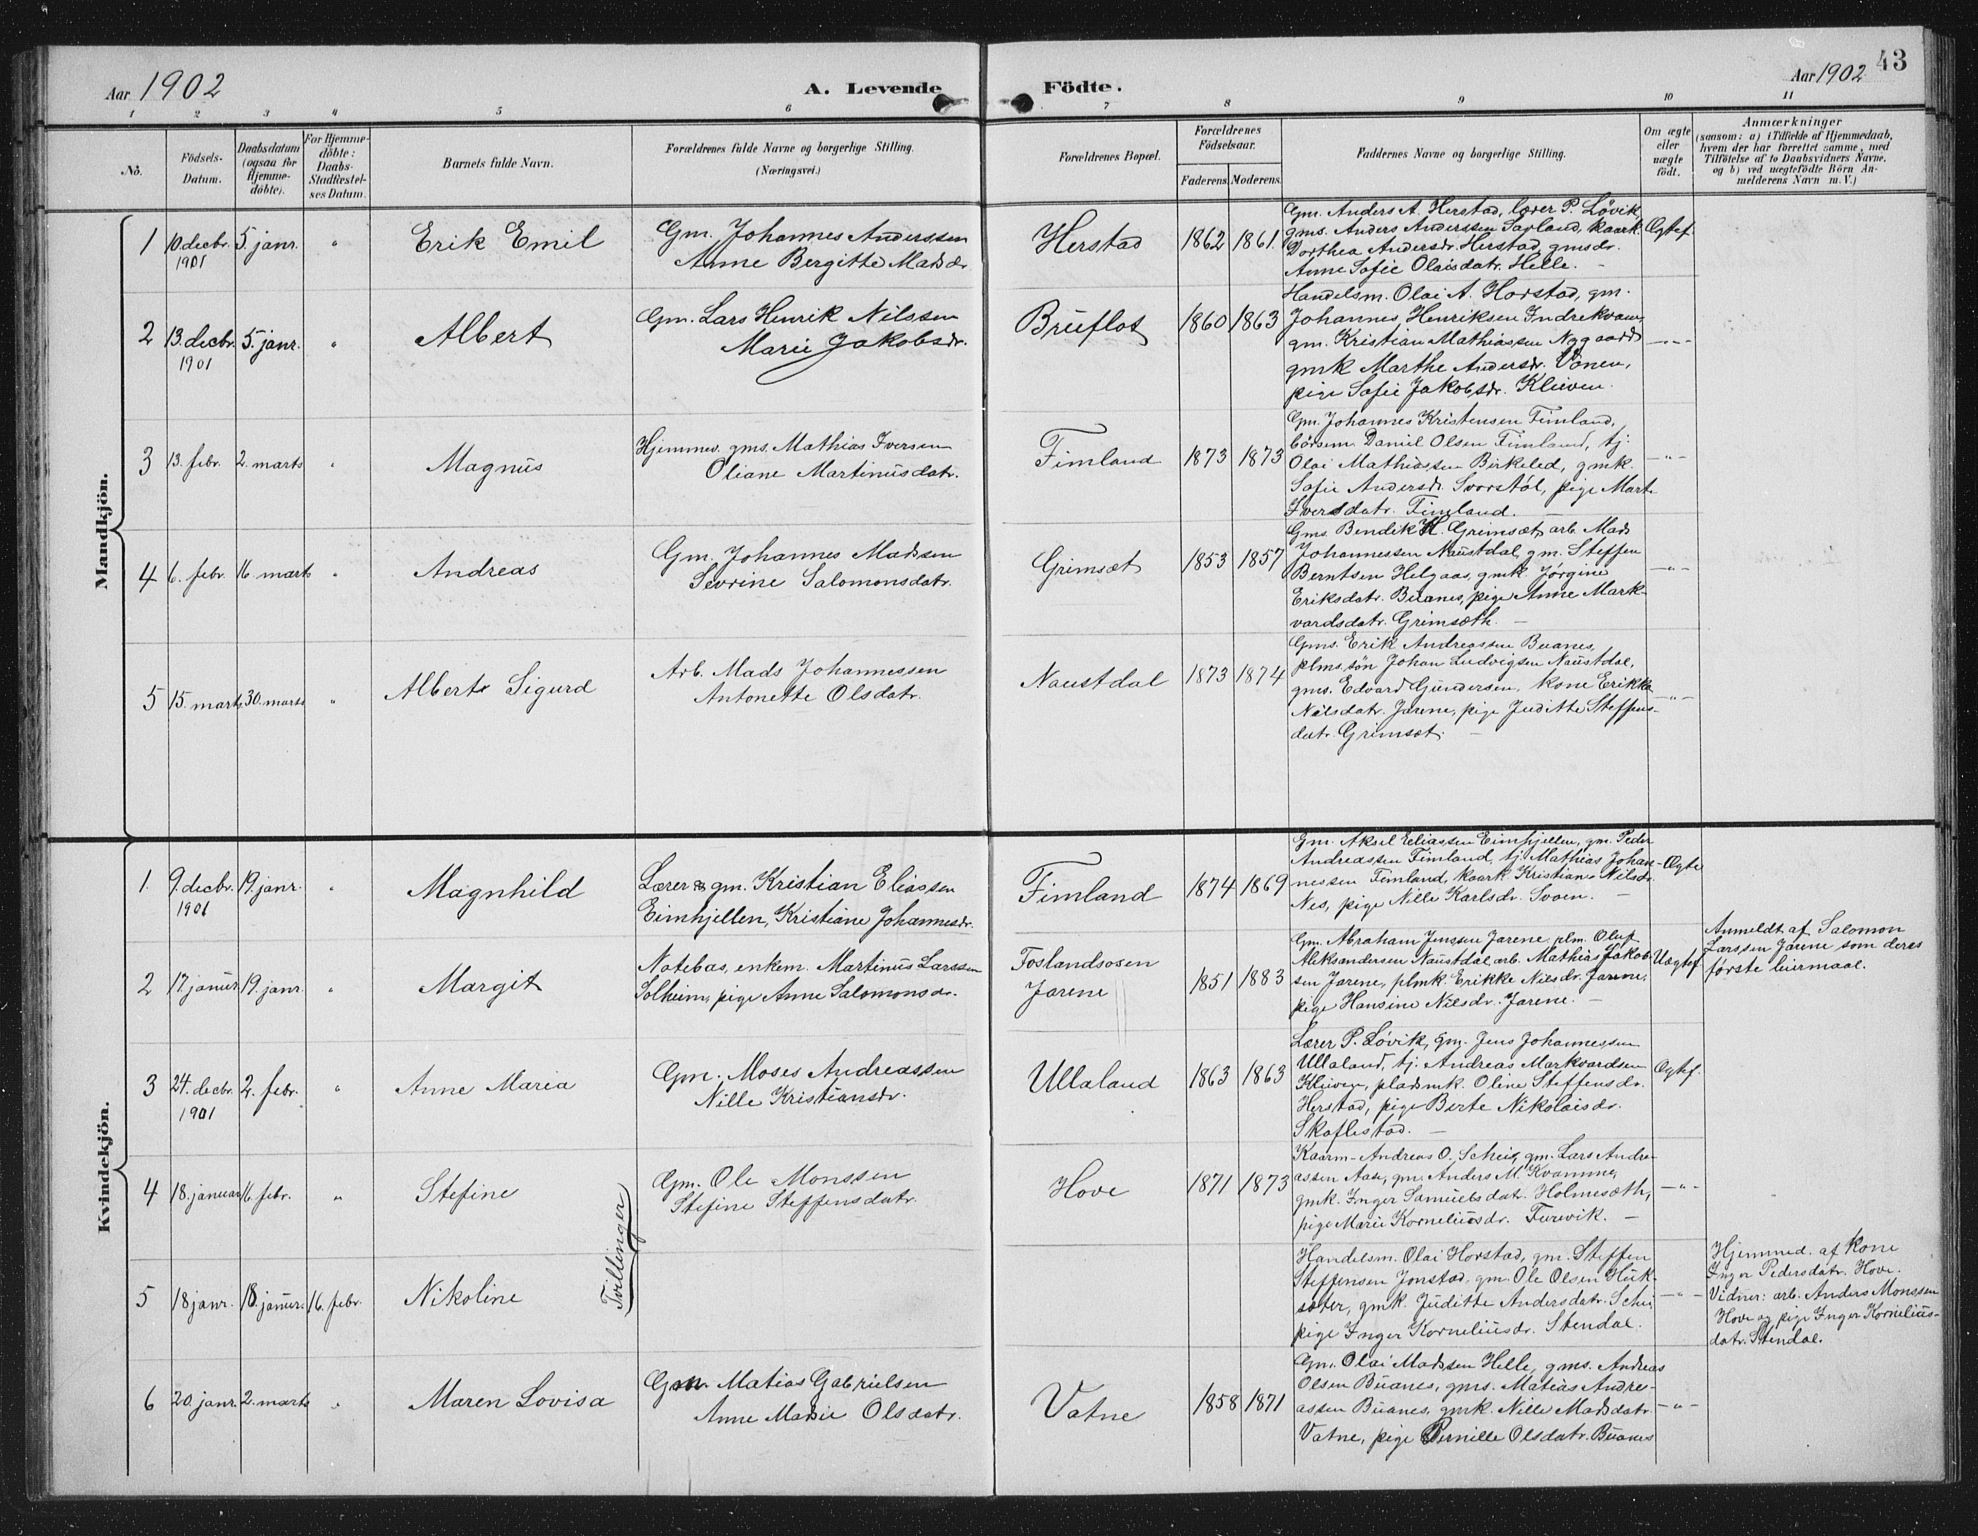 Aar 1902
A. Levende
Födte.
Aar 1902
43
1 2 3 4 5 6 7 8 9 10 11
No.
Födsels-
Datum.
Daabsdatum
(ogsaa for
Hjemme-
döbte).
For Hjemme-
döbte:
Daabs-
Stadfæstel-
ses Datum.
Barnets fulde Navn.
Forældrenes fulde Navne og borgerlige Stilling.
(Næringsvei.)
Forældrenes Bopæl.
Forældrenes
Födselsaar.
Faderens. Moderens.
Faddernes Navne og borgerlige Stilling.
Om ægte
eller
uægte
födt.
Anmærkninger
(saasom: a) i Tilfælde af Hjemmedaab,
hvem der har forrettet samme, med
Tilföielse af to Daabsvidners Navne,
og b) ved uægtefödte Börn An-
melderens Navn m. V.)
Mandkjön.
1 10. decbr. 5. janr. " Erik Emil
1901
Gm. Johannes Anderssen
Anne Bergitte Madsdr.
Herstad 1862 1861.
Gm. Anders A. Herstad, lærer P. Løvik,
gms. Anders Anderssen Sagland, kaark.
Dorthea Andersdr. Herstad, gmsdr.
Anne Sofie Olaisdatr. Helle. –
Ægtef.
2 13. decbr. 5. janr. " Albert
1901
Gm. Lars Henrik Nilssen
Marie Jakobsdr.
Bruflot 1860 1863
Handelsm. Olai A. Horstad, gm.
Johannes Henriksen Indrekvam,
gm. Kristian Mathiassen Nygaard
gmk Marthe Andersdr. Vonen,
pige Sofie Jakobsdr. Kleiven.
–"–
3 13. febr. 2. marts " Magnus
Hjemmev. gms. Mathias Iversen
Oliane Martinusdatr.
Fimland 1873 1873
Gm. Johannes Kristensen Fimland,
børsem. Daniel Olsen Fimland, tj.
Olai Mathiassen Birkeled, gmk.
Sofie Andersdr. Svorstøl, pige Mart
Iversdatr. Fimland. –
–"–
4 6. febr. 16. marts " Andreas
Gm. Johannes Madssen
Sevrine Salomonsdatr.
Grimsæt 1853 1857
Gms. Bendik K. Grimsæt, arb. Mads
Johannessen Naustdal, gm. Steffen
Berntsen Helgaas, gmk Jørgine
Eriksdatr. Buanes, pige Anne Mark-
vardsdatr. Grimsæth. –
–"–
5 15. marts 30. marts " Albert Sigurd
Arb. Mads Johannessen
Antonette Olsdatr.
Naustdal 1873 1874
Gms. Erik Andreassen Buanes,
plms. søn Johan Ludvigsen Naustdal,
gms. Edvard Gundersen, kone Erikka
Nilsdatr. Jarene, pige Juditte Steffens-
datr. Grimsæt. –
–"–
Kvindekjön.
1. 9. decbr. 19. janr. " Magnhild
1901
Lærer & gm. Kristian Eliassen
Eimhjellen, Kristiane Johannesdr.
Fimland 1874 1869
Gm. Aksel Eeliassen Eimhjellen, gm. Peder
Andreassen Fimland, tj. Mathias Johan-
nessen Fimland, kaark Kristiane Nilsdr.
Nes, pige Nille Karlsdr. Svoen. –
Ægte
2 17. januar 19. janr. " Margit
Notebas, enkem. Martinus Larssen
Solheim, pige Anne Salomonsdr.
Foslandsosen
Jarene
1851 1883
Gm. Abraham Jenssen Jarene, plm. Oluf
Aleksandersen Naustdal, arb. Mathias Jakob-
sen Jarene, plmk. Erikke Nilsdr. Jarene,
pige Hansine Nilsdr. Jarene. –
Uægtef.
Anmeldt af Salomon
Larssen Jarene som deres
første leiermaal.
3 24. decbr. 2. febr. " Anne Maria
1901
Gm. Moses Andreassen
Nille Kristiansdr.
Ullaland 1863 1863
Lærer P. Løvik, gm. Jens Johannessen
Ullaland, tj. Andreas Markvardsen
Kleiven, pladsmk. Oline Steffensdr.
Herstad, pige Berte Nikolaisdr.
Skaflestad. –
Ægtef.
4 18. januar 16. febr. " Stefine
Gm. Ole Monssen
Stefine Steffensdatr.
Hove 1871 1873
Kaarm. Andreas O. Schei, gm. Lars Andre-
assen Aase, gm. Anders M. Kvamme,
gmk. Inger Samuelsdatr. Holmesæth,
pige Marie Korneliusdr. Furevik. –
–"–
Tvillinger
5 18 janr. 18. januar. 16. febr. Nikoline
Handelsm. Olai Horstad, gm. Steffen
Steffensen Jonstad, gm. Ole Olsen Huk-
sæter, gmk. Juditte Andersdatr. Schei,
pige Inger Korneliusdr. Stendal.
–"–
Hjemmed. af kone
Inger Pedersdatr. Hove.
Vidner: arb. Anders Monssen
Hove og pige Inger Kornelius-
datr. Stendal.
6 20. janr. 2. marts " Maren Lovisa
Gm. Matias Gabrielsen
Anne Marie Olsdatr.
Vatne 1858 1871
Gm. Olai Madssen Helle, gms. Andreas
Olsen Buanes, gms. Matias Andre-
assen Buanes, gmk. Nille Madsdatr.
Vatne, pige Pernille Olsdatr. Buanes
–"–